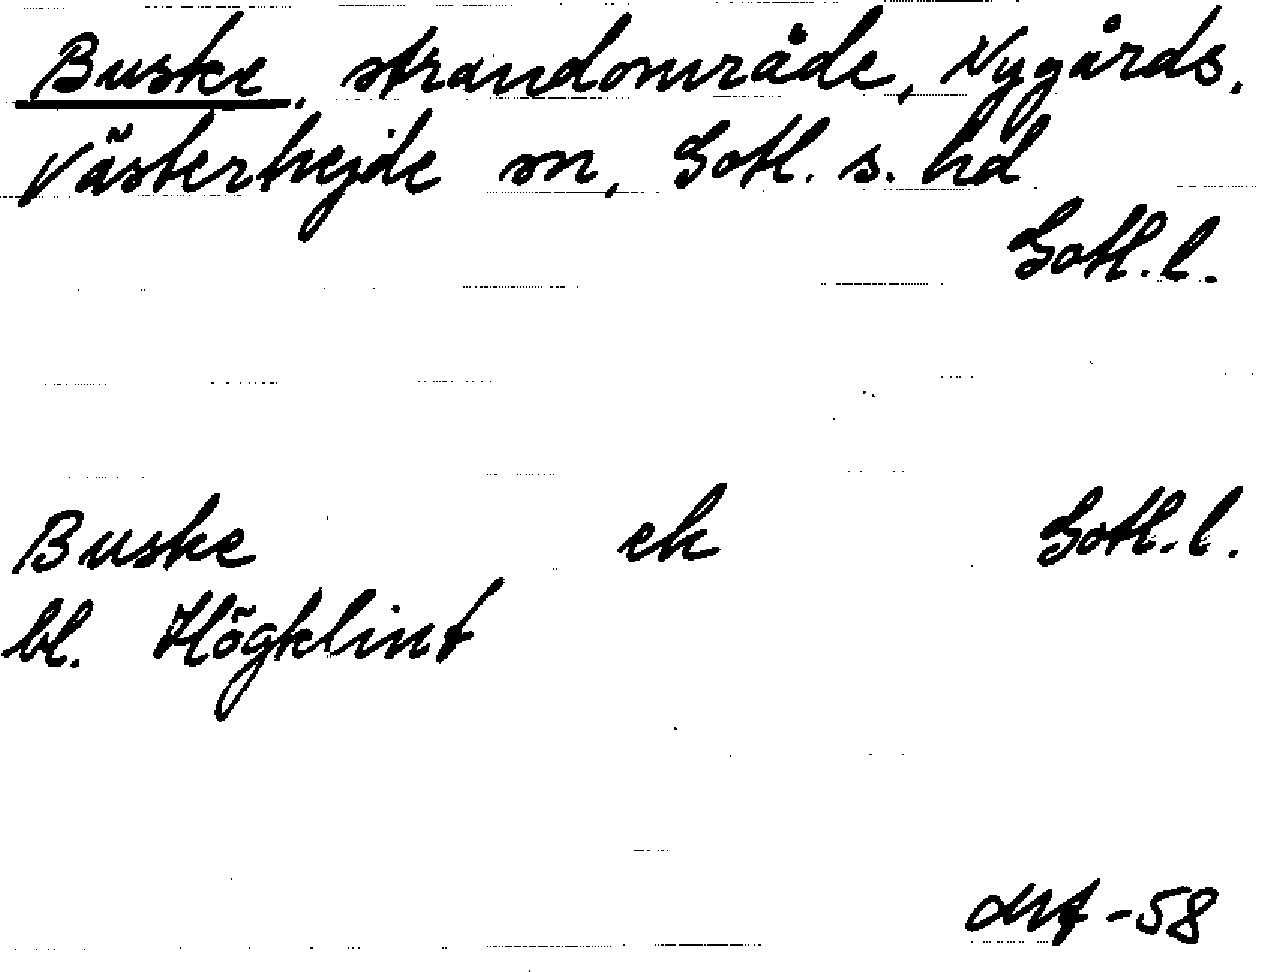 Buske, strandområde, Nygårds,
Västerhejde sn, Gotl. s. hd
Gotl. l.
Buske ek Gotl. l.
bl. Högklint
-58